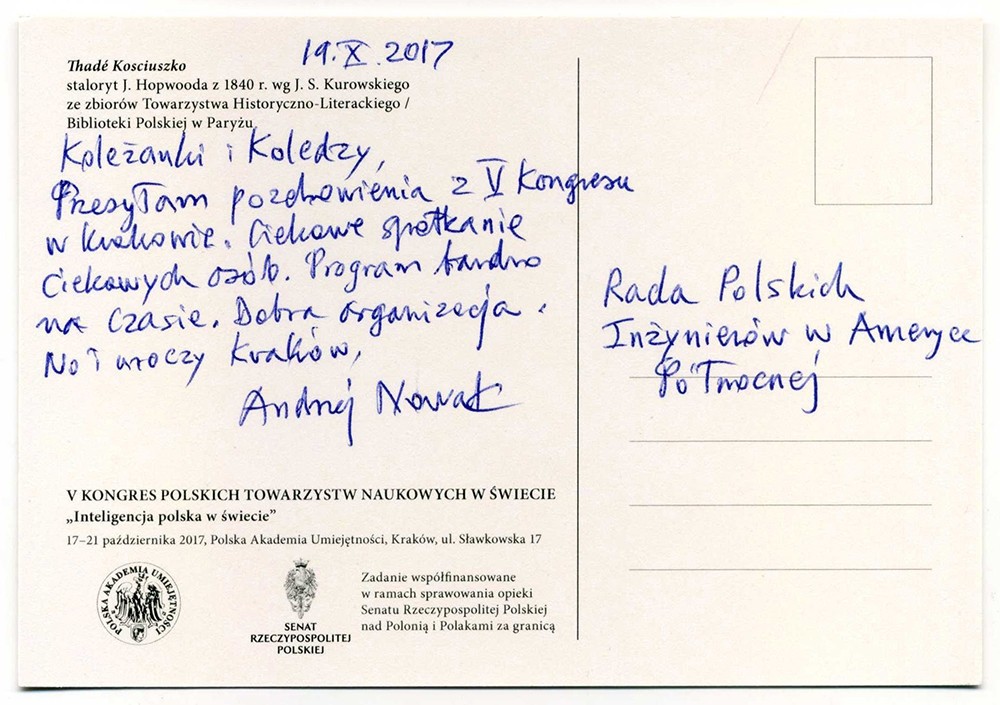 19.X.2017
Thadé Kosciuszko
staloryt J. Hopwooda z 1840 r. wg J. S. Kurowskiego
ze zbiorów Towarzystwa Historyczno-Literackiego /
Biblioteki Polskiej w Paryżu
Koleżanki i Koledzy,
Przesyłam pozdrowienia z V Kongresu
w Krakowie. Ciekawe spotkanie
ciekawych osób. Program bardzo
na czasie. Dobra organizacja.
No i uroczy Kraków,
Andrzej Nowak
V KONGRES POLSKICH TOWARZYSTW NAUKOWYCH W ŚWIECIE
„Inteligencja polska w świecie”
17–21 października 2017, Polska Akademia Umiejętności, Kraków, ul. Sławkowska 17
POLSKA AKADEMIA UMIEJĘTNOŚCI
SENAT
RZECZYPOSPOLITEJ
POLSKIEJ
Zadanie współfinansowane
w ramach sprawowania opieki
Senatu Rzeczypospolitej Polskiej
nad Polonią i Polakami za granicą
Rada Polskich
Inżynierów w Ameryce
Północnej